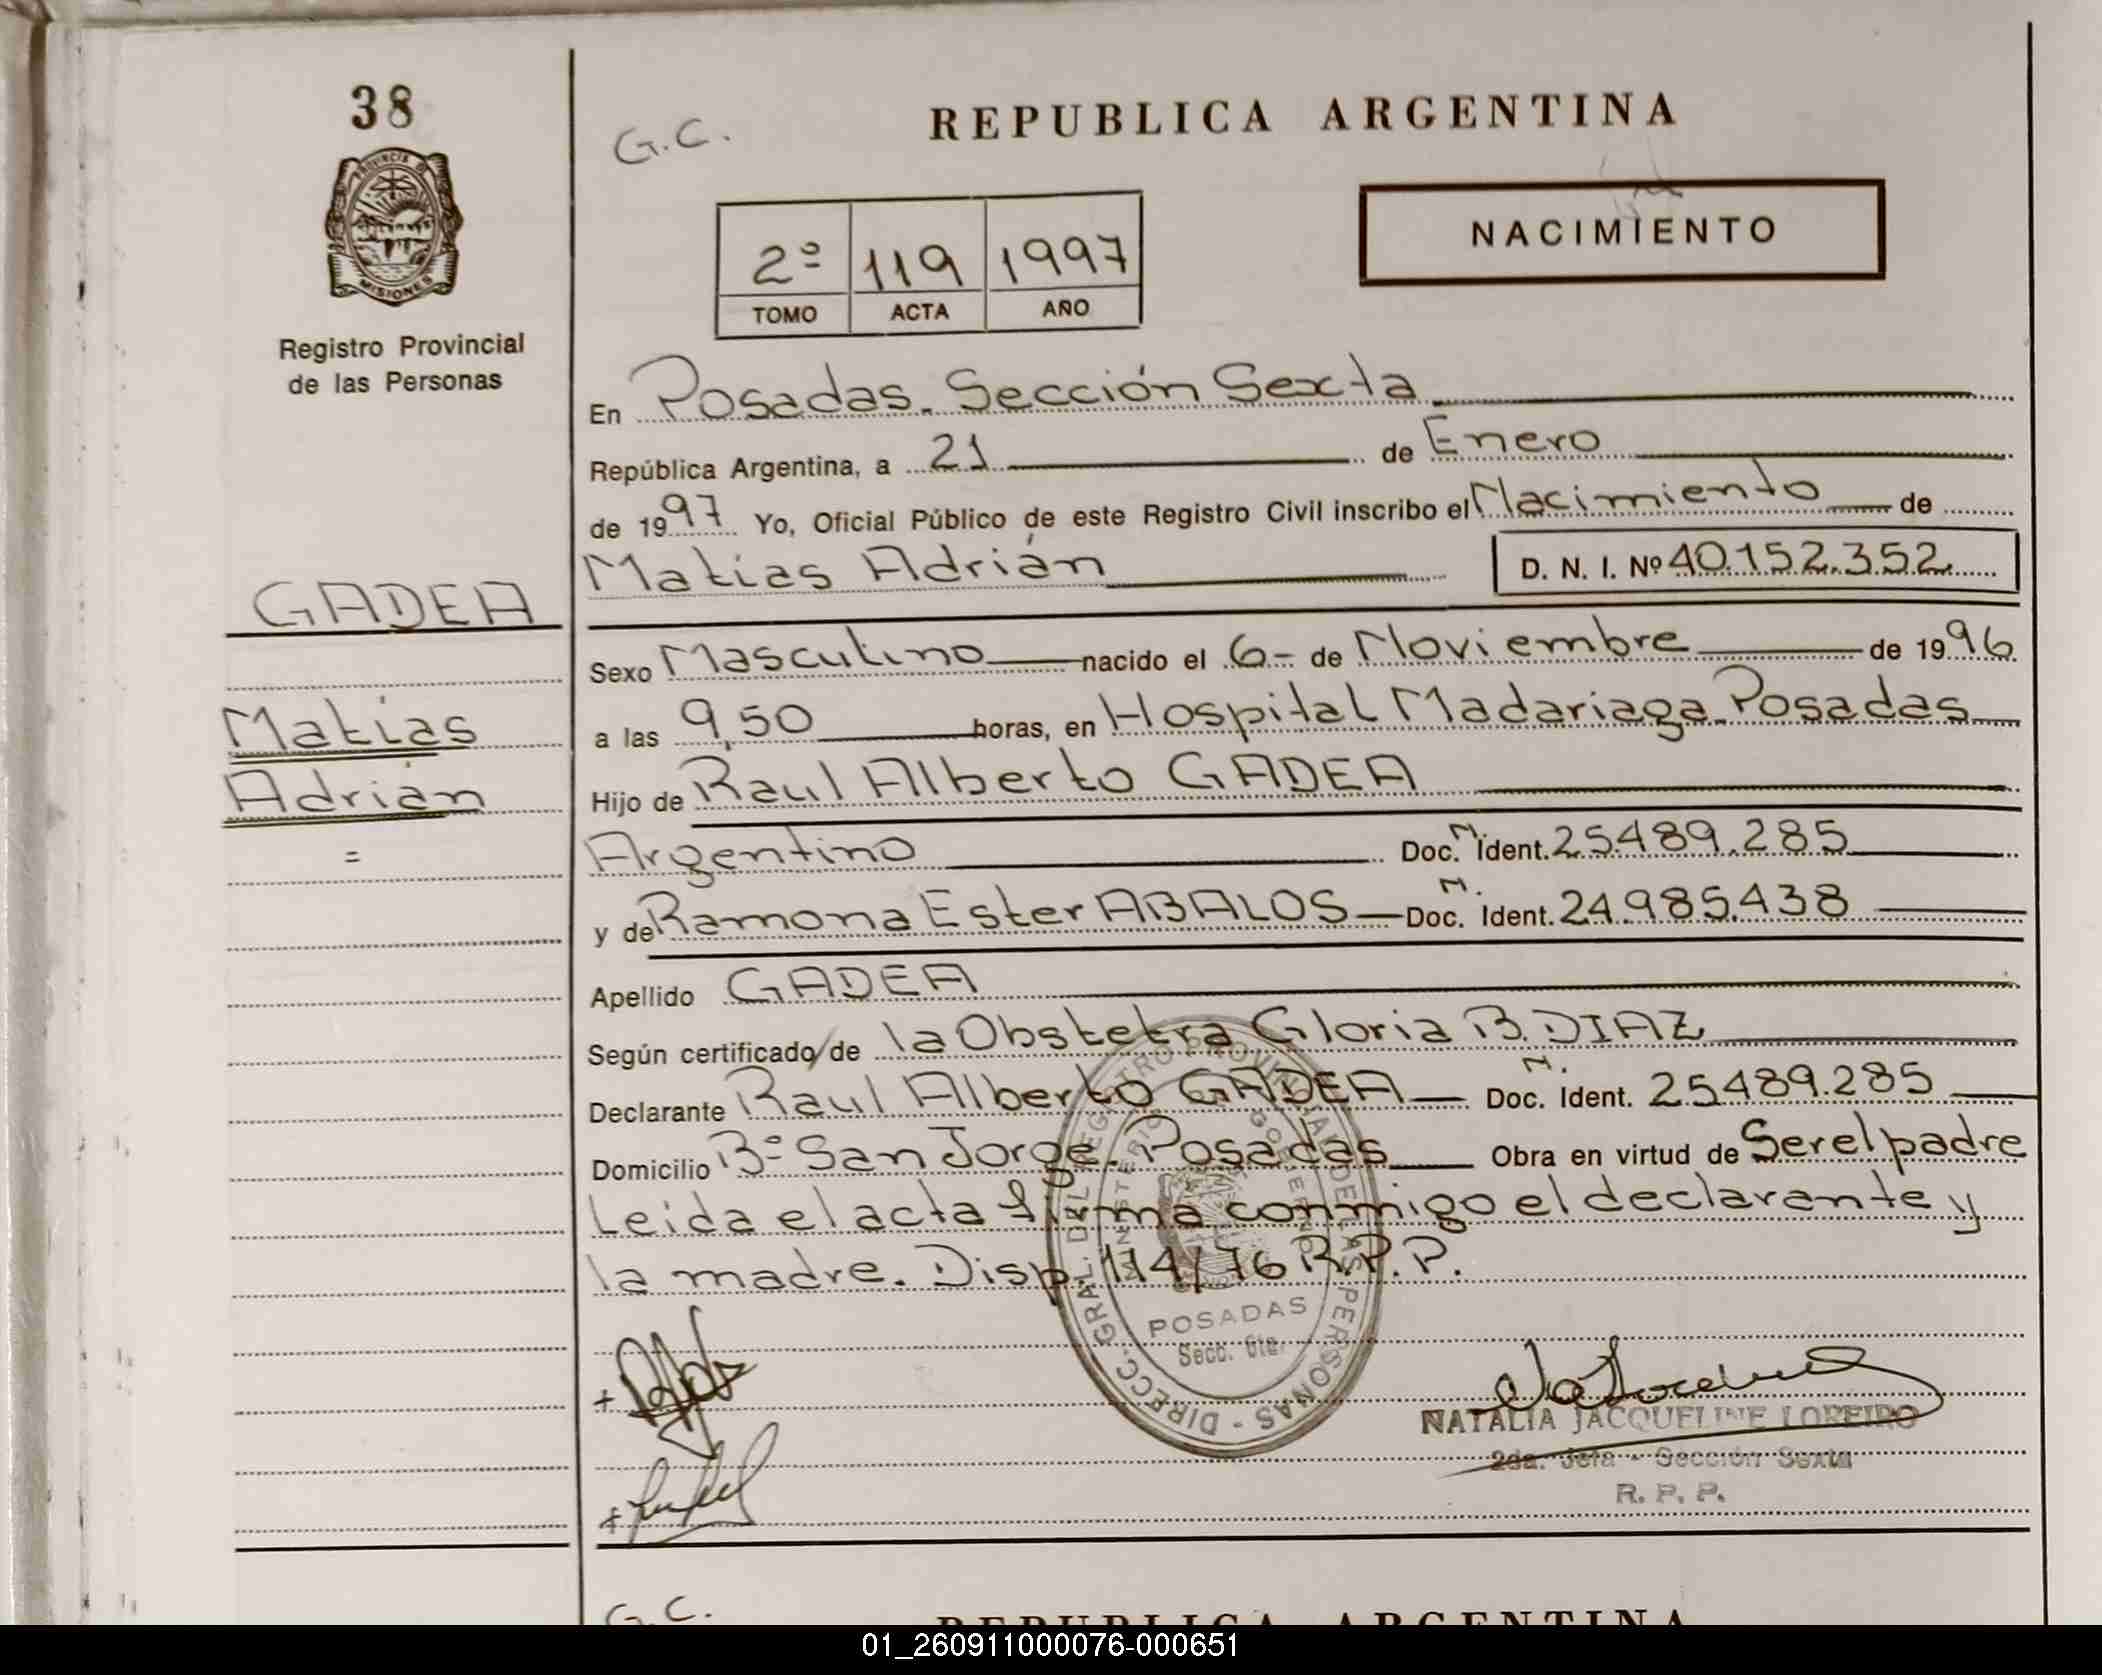 38
PROVINCIA DE
MISIONES
Registro Provincial
de las Personas
G.C.
REPUBLICA ARGENTINA
NACIMIENTO
2º 119 1997
TOMO ACTA AÑO
En Posadas. Sección Sexta
República Argentina, a 21 de Enero
de 1997 Yo, Oficial Público de este Registro Civil inscribo el Nacimiento de
Matías Adrián D. N. I. Nº 40.152.352
GADEA
Matías
Adrián
=
Sexo Masculino nacido el 6- de Noviembre de 1996
a las 9,50 horas, en Hospital Madariaga. Posadas
Hijo de Raul Alberto GADEA
Argentino Doc. N. Ident. 25.489.285
y de Ramona Ester ABALOS Doc. N. Ident. 24.985.438
Apellido GADEA
Según certificado/de la Obstetra Gloria B. DIAZ
Declarante Raul Alberto GADEA Doc. N. Ident. 25489.285
Domicilio Bº San Jorge. Posadas Obra en virtud de Ser el padre
Leida el acta firma conmigo el declarante y
la madre. Disp. 114/76 R.P.P.
DIRECC. GRAL. DEL REGISTRO PROVINCIAL DE LAS PERSONAS -
MINISTERIO GOBIERNO
POSADAS
Secc. 6ta.
NATALIA JACQUELINE LOREIRO
2da. Jefa - Sección Sexta
R. P. P.
G.C.
REPUBLICA ARGENTINA
01_260911000076-000651